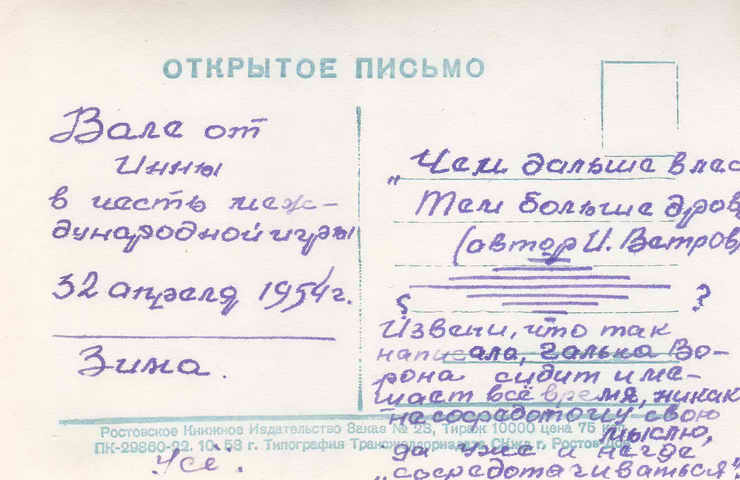 ОТКРЫТОЕ ПИСЬМО
Вале от
Инны
в честь меж-
дународной игры
32 апреля 1954 г.
Зина.
„Чем дальше в лес
Тем больше дров
(автор И. Ветров
?
Извени, что так
написала, Галька Во-
рона сидит и ме-
шает всё время, никак
не сосредоточу свою
мыслю,
да уже и негде
„сосредотачиваться"
Ростовское Книжное Издательство Заказ № 28, Тираж 10000 цена 75 коп.
ПК-29860-22. 10. 53 г. Типография г. Ростов-Дон
Усё.